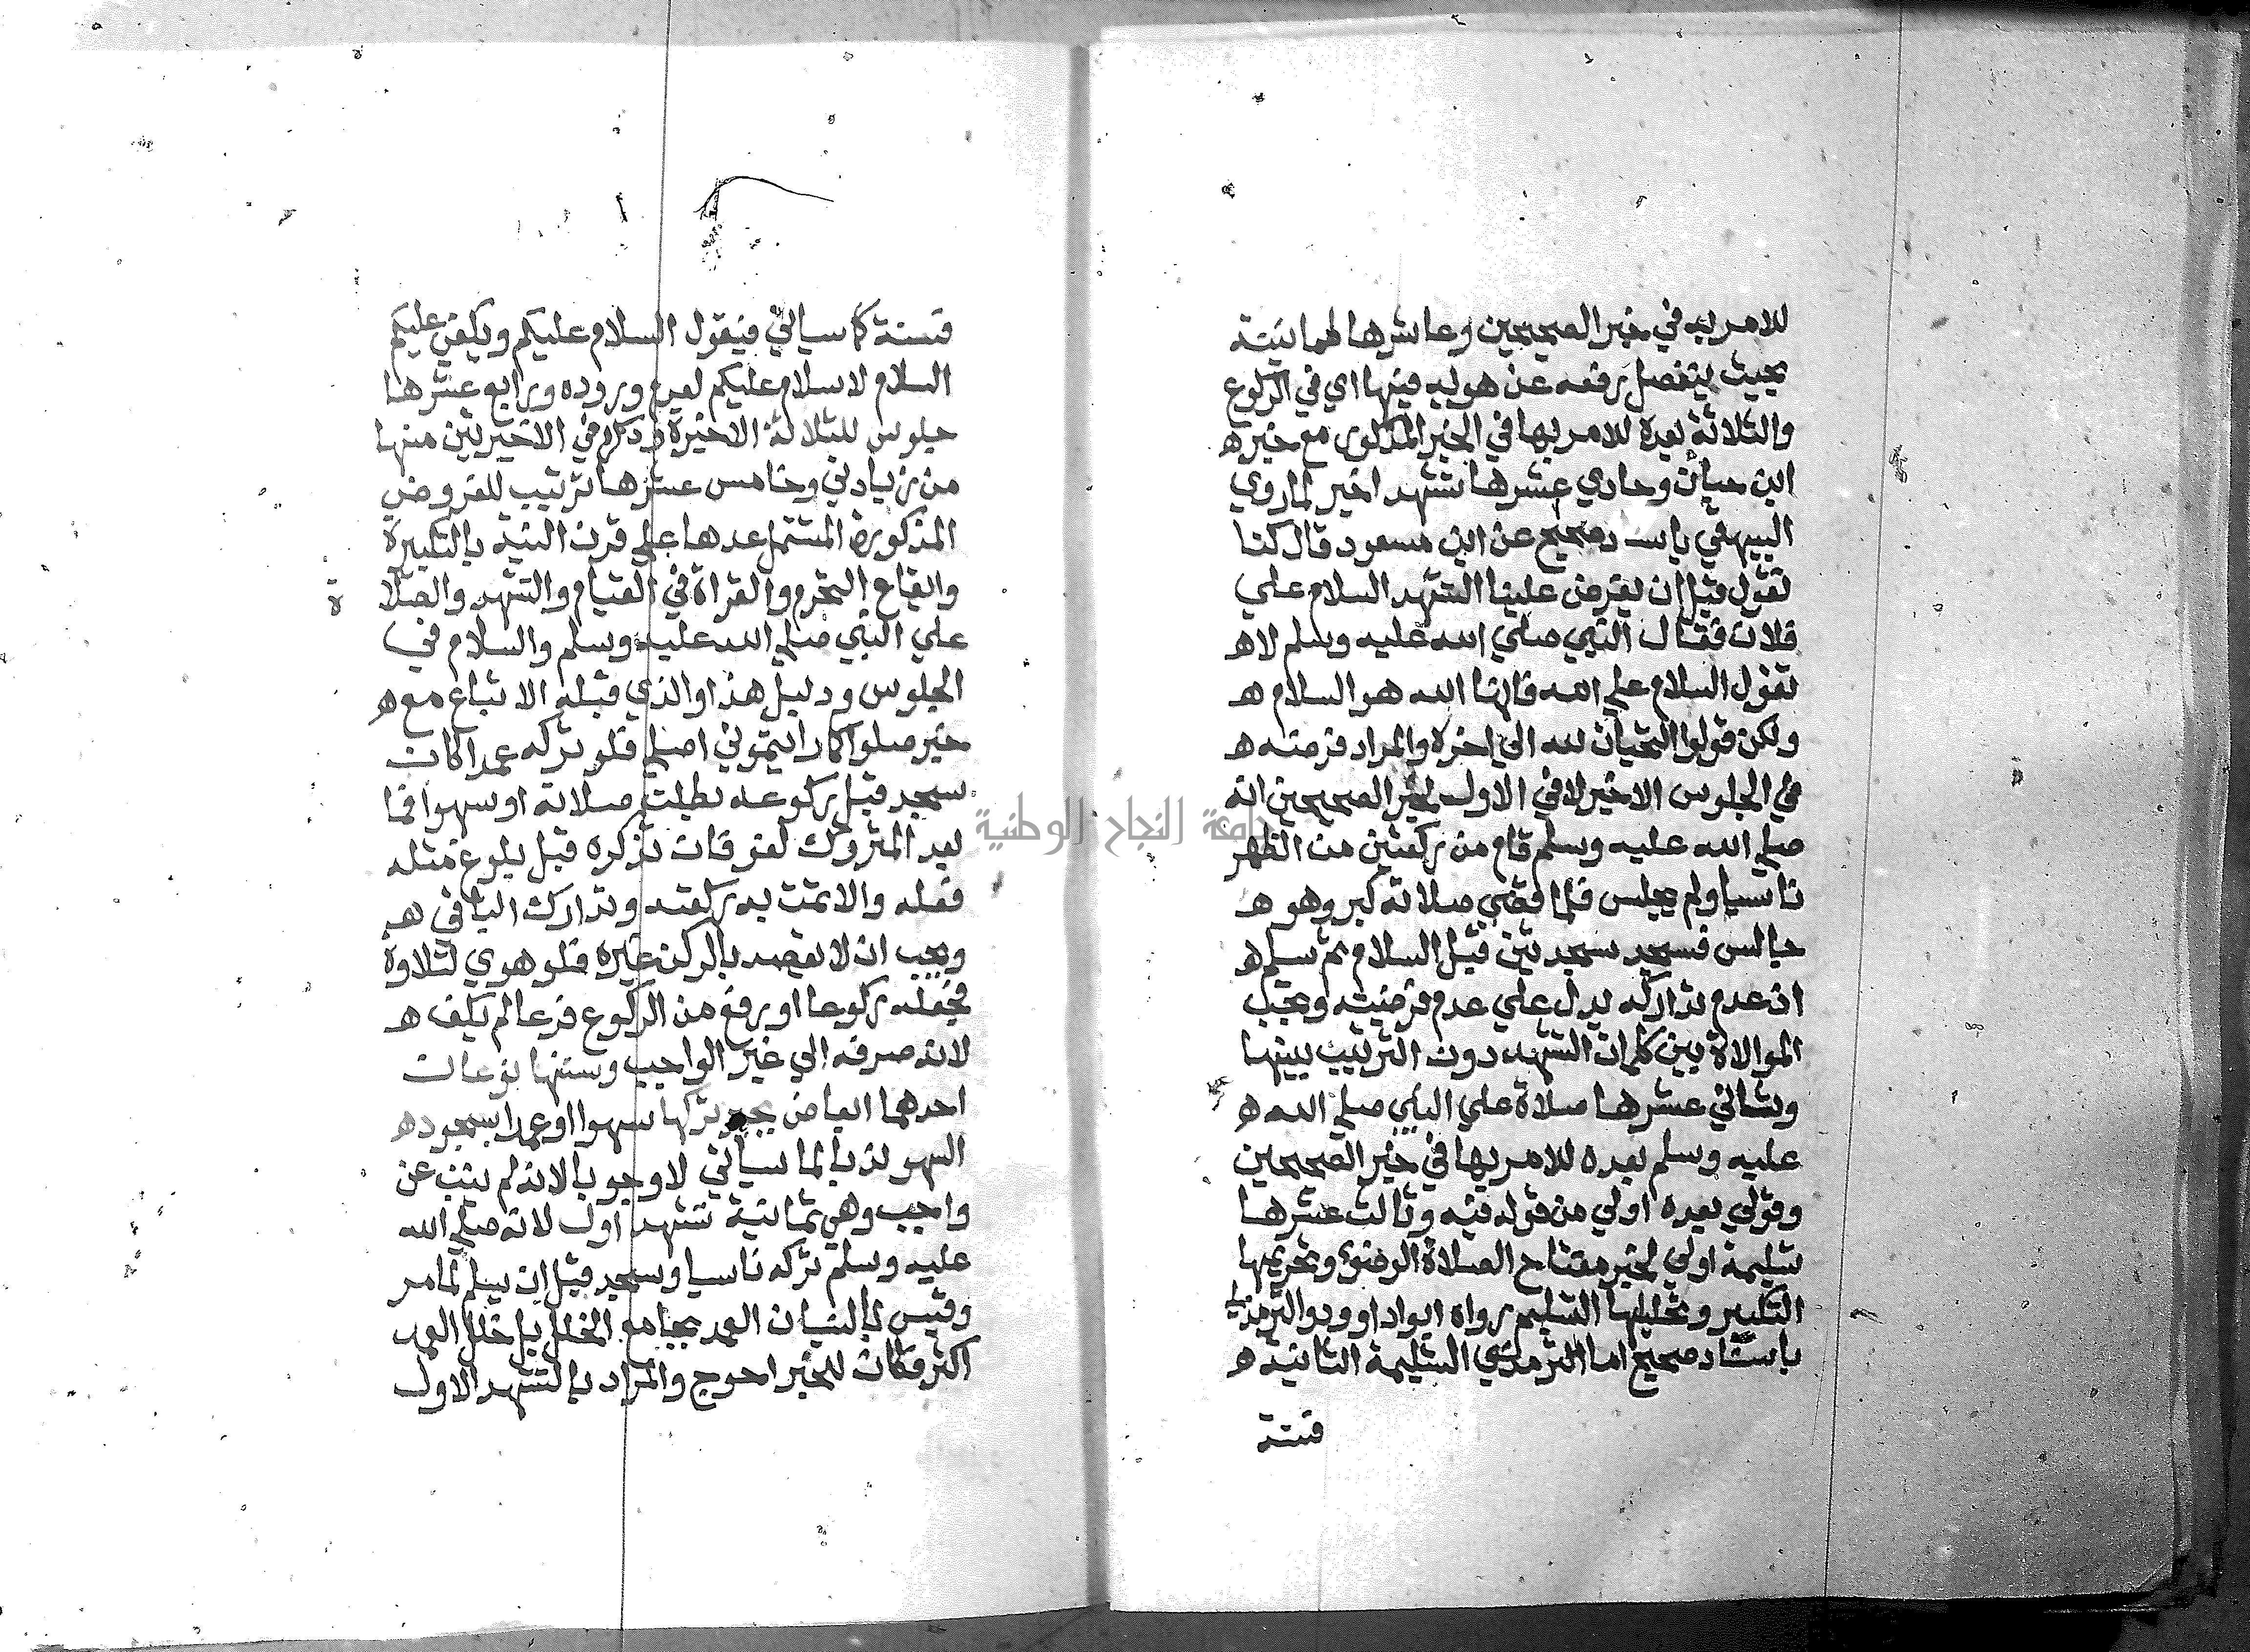 للامر به في خبر الصحيحين وعاشرها طمانينة
بحيث ينفصل رفعه عن هويه فيها اي في الركوع
والثلاثة بعده للامر بها في الخبر المذكور مع خبر ه
ابن حبان وحادي عشرها تشهد اخير لما روي
البيهقي باسناد صحيح عن ابن مسعود قال كنا
نقول قبل ان يفرض علينا التشهد السلام علي
فلان فقال النبي صلي الله عليه وسلم لا ه
تقولوا السلام علي الله فان الله هو السلام ه
ولكن قولوا التحيات لله الي اخره والمراد فرضه ه
في الجلوس الاخير لا في الاول لخبر الصحيحين انه
صلي الله عليه وسلم قام من ركعتين من الظهر
ناسيا ولم يجلس فلما قضي صلاته كبر وهو ه
جالس فسجد سجدتين قبل السلام ثم سلم ه
ان عدم تداركه يدل علي عدم فرضيته ويجب
الموالاة بين كلمات التشهد دون الترتيب بينها
وثاني عشرها صلاة علي النبي صلي الله ه
عليه وسلم بعده للامر بها في خبر الصحيحين
وقولي بعده اولي من قوله فيه وثالث عشرها
تسليمة اولي لخبر مفتاح الصلاة الوضوء وتحريمها
التكبير وتحليلها التسليم رواه ابو داوود والترمذي
باسناد صحيح اما الترمذي التسليمة الثانية ه
فسنة
جامعة النجاح الوطنية
فسنة كما سياتي فيقول السلام عليكم ويكفي عليكم
السلام لا سلام عليكم لعدم وروده ورابع عشرها
جلوس للثلاثة الاخيرة وذكره في الاخيرتين منها
من زيادتي وخامس عشرها ترتيب للفروض
المذكورة المشتمل عدها علي قرن النية بالتكبيرة
وايقاع التحرم والقراة في القيام والتشهد والصلا
ة
علي النبي صلي الله عليه وسلم والسلام في
الجلوس ودليل هذا والذي قبله الاتباع مع ه
خبر صلوا كما رايتموني اصلي فلو تركه عمدا كان
سجد قبل ركوعه بطلت صلاته او سهوا فما
بعد المتروك لغو فان تذكره قبل بلوغ مثله
فعله والا تمت به ركعته وتدارك الباقي ه
ويجب ان لا يقصد بالركن غيره فلو هوي لتلاوة
فجعله ركوعا او رفع من الركوع فزعا لم يكف ه
لانه صرفه الي غير الواجب وسننها نوعان
احدهما ابعاض يجبر تركها سهوا او عمدا بسجود ه
السهو ندبا لما سياتي لا وجوبا لانه لم ينب عن
واجب وهي ثمانية تشهد اول لانه صلي الله
عليه وسلم تركه ناسيا وسجد قبل ان يسلم لما مر
وقيس بالنسيان العمد بجامع الخلل بل خلل العمد
اكثر فكان للجبر احوج والمراد بالتشهد الاول